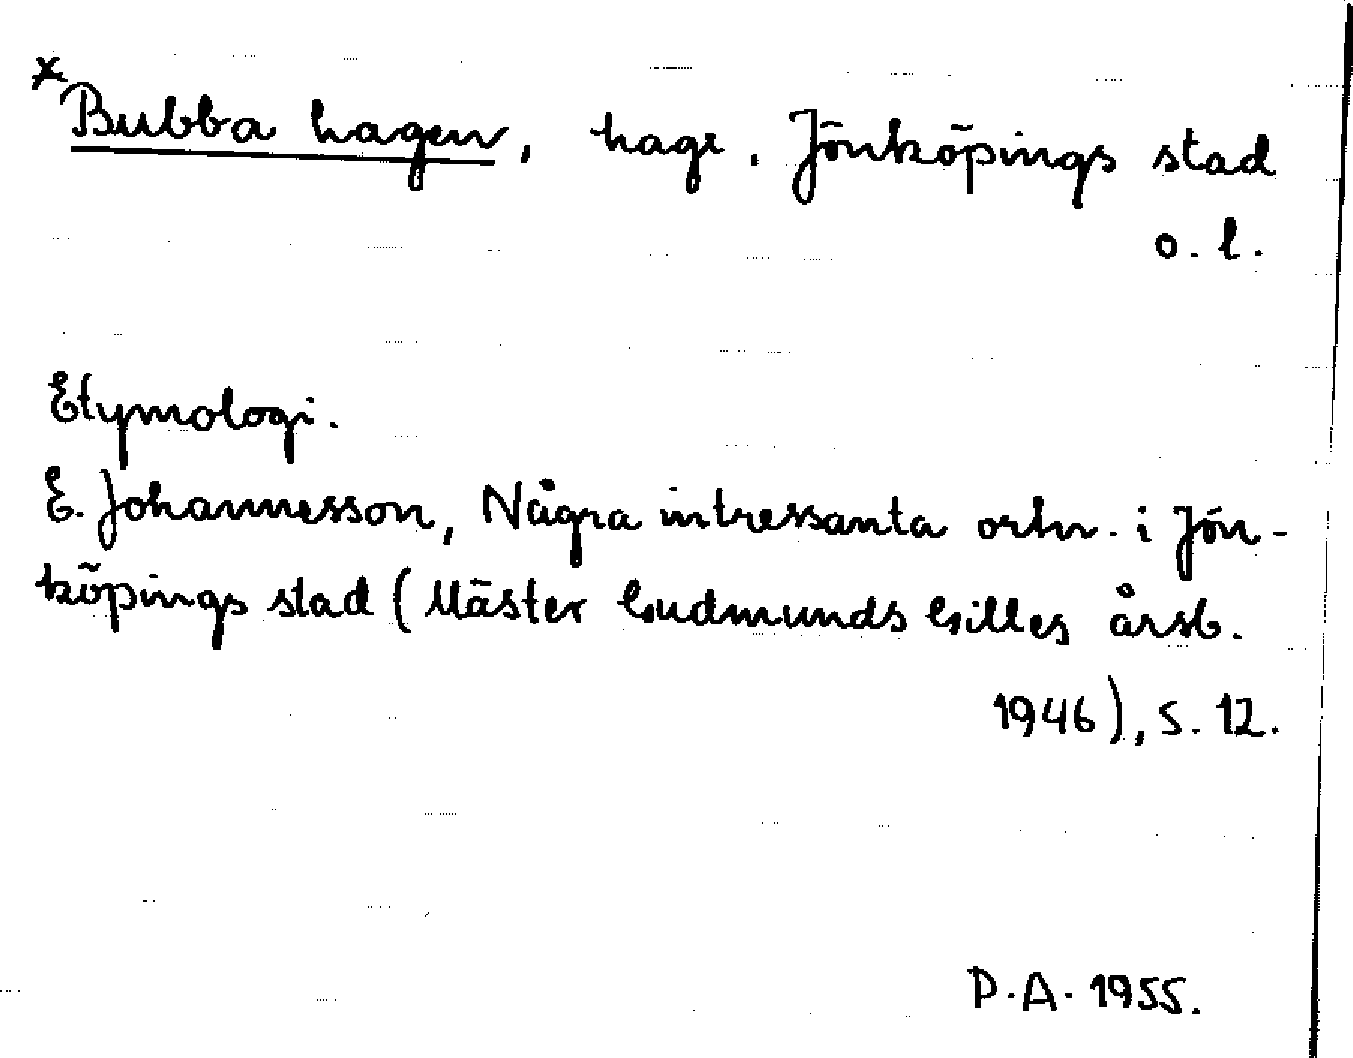 x Bubba hagen, hage. Jönköpings stad
o. l.
Etymologi.
E. Johannesson, Några intressanta ortn. i Jön-
köpings stad (Mäster Gudmunds Gilles årsb.
1946), s. 12.
P.A. 1955.